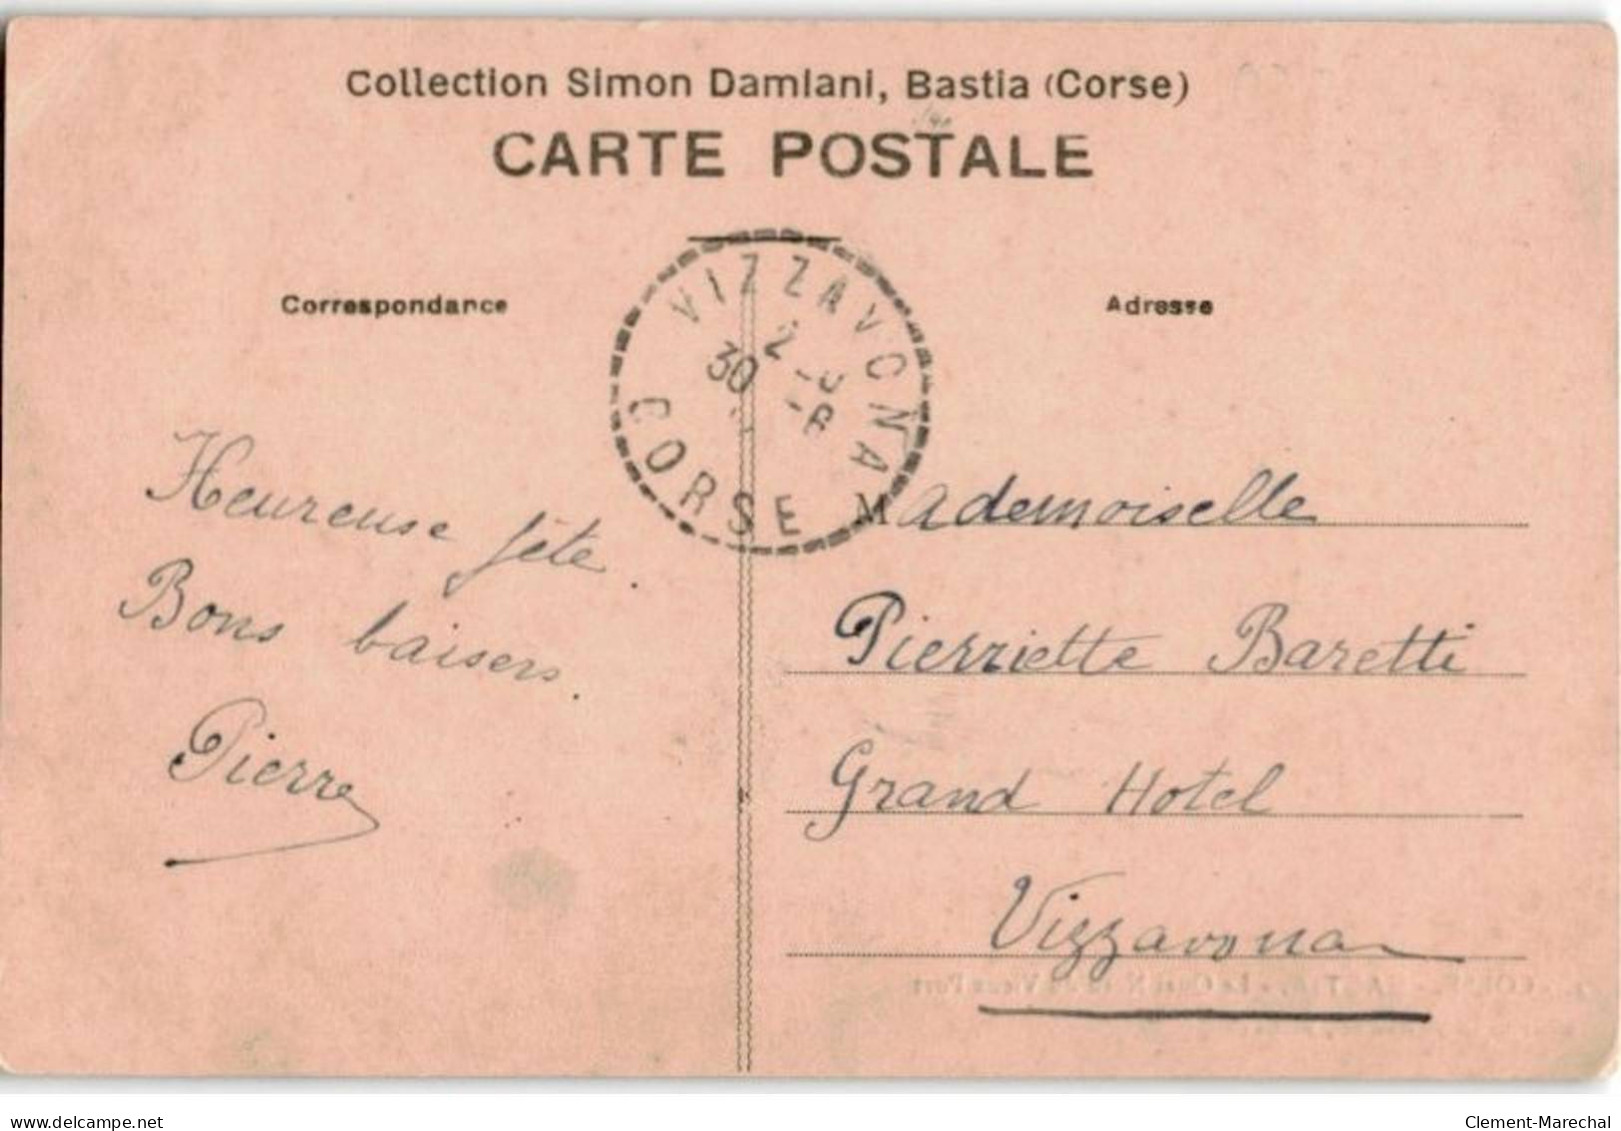 Collection Simon Damiani, Bastia (Corse)
CARTE POSTALE
Correspondance
Adresse
VIZZAVONA
30
CORSE
Heureuse fête.
Bons baisers.
Pierre
Mademoiselle
Pierriette Baretti
Grand Hotel
Vizzavona
delcampe.net
Clement-Marechal